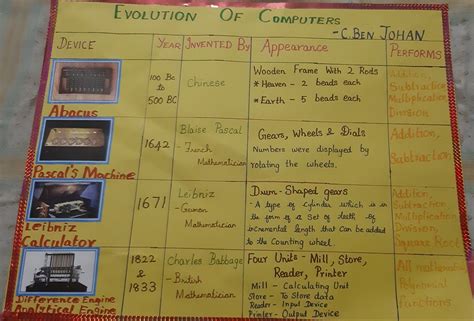 EVOLUTION OF COMPUTERS
- C. BEN JOHAN
DEVICE
YEAR
INVENTED BY
Appearance
PERFORMS
Abacus
100 BC
to
500 BC
Chinese
Wooden Frame With 2 Rods
* Heaven - 2 beads each
* Earth - 5 beads each
Addition,
Subtraction
Multiplication
Division
Pascal's Machine
1642
Blaise Pascal
- French
Mathematician
Gears, Wheels & Dials
Numbers were displayed by
rotating the wheels.
Addition,
Subtraction
Leibniz
Calculator
1671
Leibniz
- German
Mathematician
Drum-Shaped gears
- A type of cylinder which is in
the form of a Set of
of
incremental length that can be added
to the Counting wheel.
Addition
Subtraction
Multiplication
Division,
Square Root
Difference Engine
Analytical Engine
1822
&
1833
Charles Babbage
- British
Mathematician
Four Units - Mill, Store,
Reader, Printer
Mill - Calculating Unit
Store - To Store data
Reader - Input Device
Printer - Output Device
All mathematical
Polynomial
functions